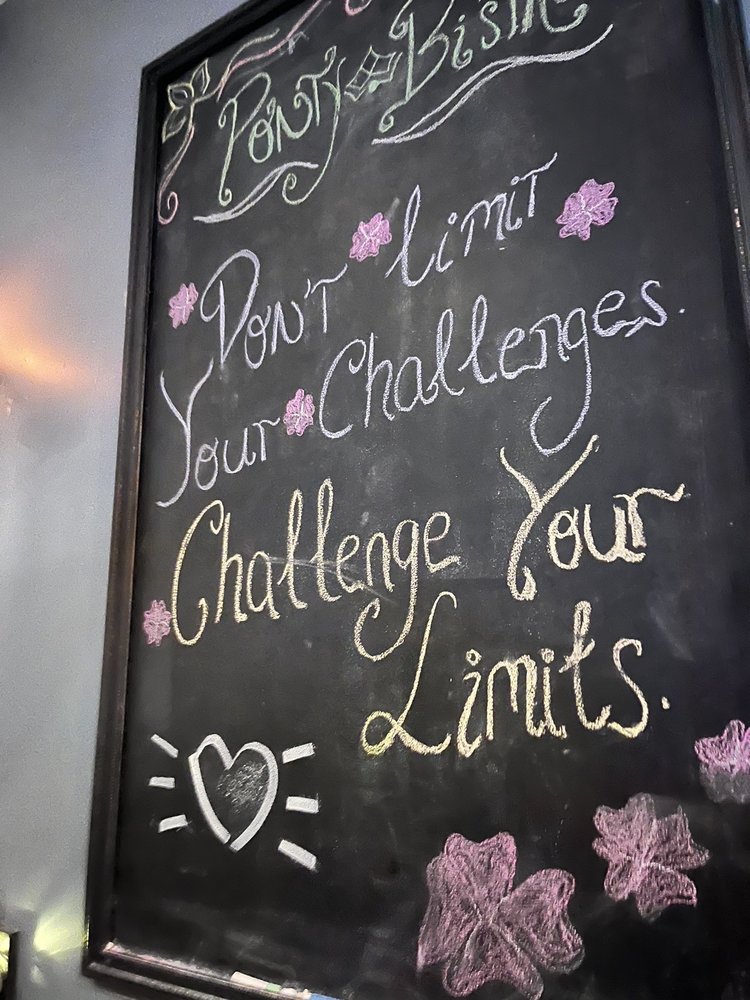 PonTy Bistr
Don't limit
Your Challenges.
Challenge Your
Limits.